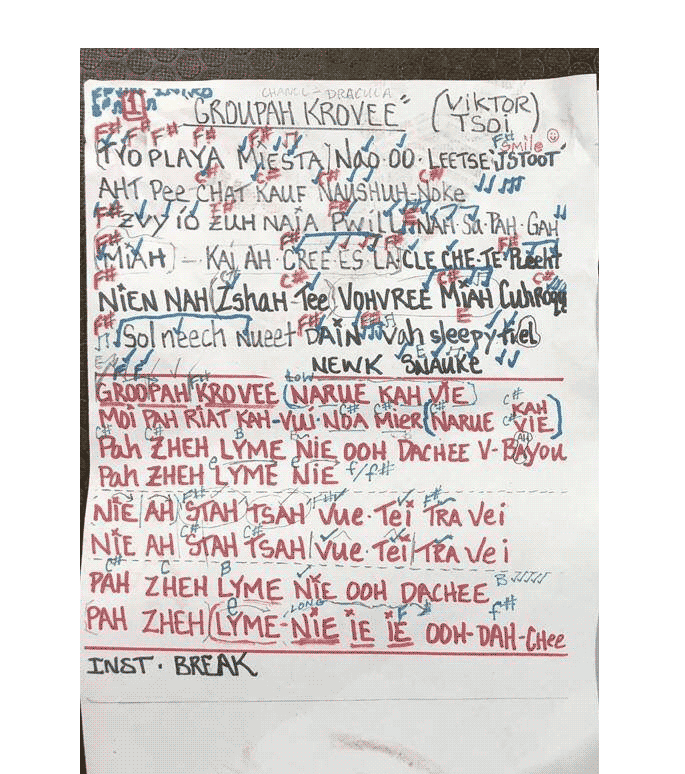 CHANEL - DRACULA
1 "GROUPAH KROVEE" (VIKTOR TSOI)
F# F# F# F# F# F# Smile
(TYO PLAYA MIESTA) NAO OO · LEETSE
C# C# C#
AHT Pee CHAT KAUF NAUSHUH-Noke
F# F# E
ZVY IO ZUH NAJA PWILL NAH · Sa · PAH · GAH
F# F# F# F#
(MIAH) - KAI AH · CREE ES LA CLE CHE-TE-
F# C# C# C#
NIEN NAH (ZshaH-Tee) (VOHVREE MIAH
F# E E
Solneech Nueet DAIN Vah sleepy
E
NEWK SNAUKE
F# LOW
GROOPAH KROVEE (NARUE KAH VIE)
C# C# C#
MOI PAH RIAT KAH-VUI-NOA MIER (NARUE KAH VIE)
C# C# B E AH
Pah ZHEH LYME NIE OOH DACHEE V-BAYOU
e e f/f#
Pah ZHEH LYME NIE
F# F# F#
NIE AH STAH TSAH VUE · TEI TRA Vei
C# C#
NIE AH STAH TSAH VUE TEI TRA Vei
C# C B B
PAH ZHEH LYME NIE OOH DACHEE
e LONG F# f#
PAH ZHEH (LYME-NIE IE IE OOH-DAH-CHee
INST · BREAK